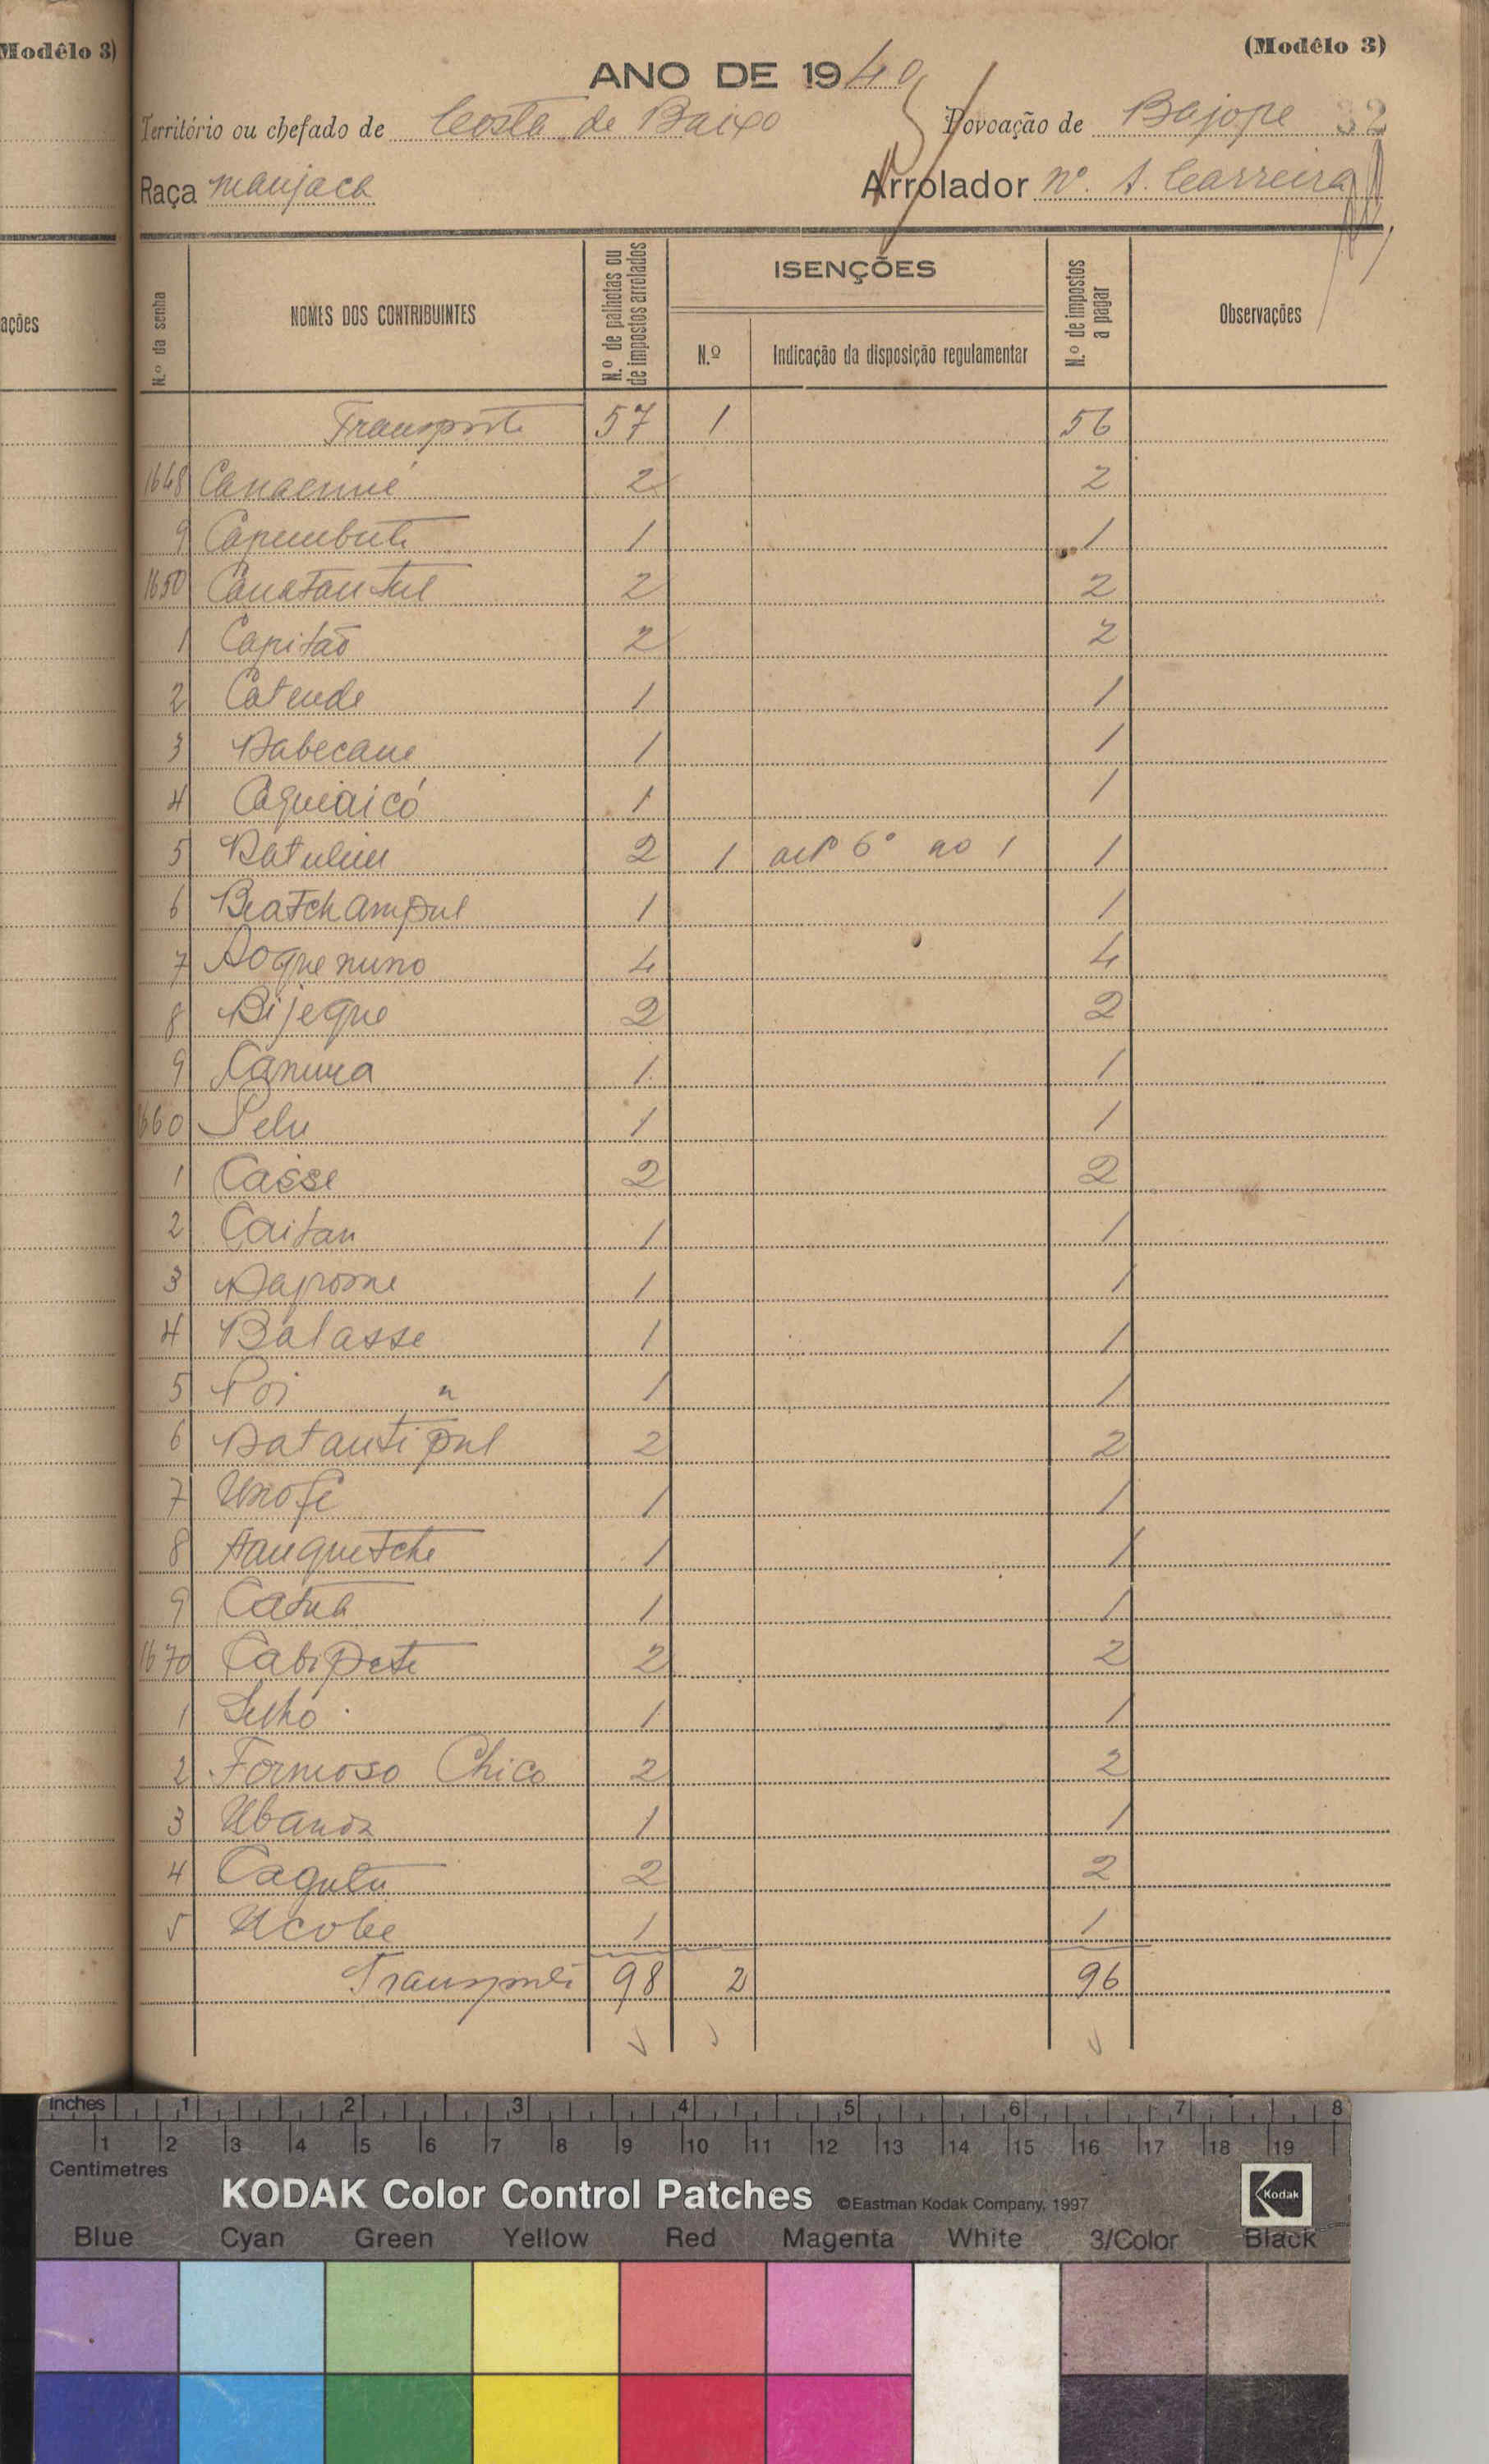 Modêlo 3)
(Modêlo 3)
ANO DE 1940
Território ou chefado de Costa de Baixo Povoação de Bajope 32
Raça manjaca Arrolador nº. A. Carreira
ações
N.º da senha NOMES DOS CONTRIBUINTES N.º de palhotas ou de impostos arrolados ISENÇÕES N.º de impostos a pagar Observações
N.º Indicação da disposição regulamentar
Transporte 57 1 56
1648 2 2
9 1 1
1650 2 2
1 Capitão 2 2
2 Catende 1 1
3 Babecane 1 1
4 Caquiaicó 1 1
5 Batulim 2 1 artº 6º no 1 1
6 Beatchampul 1 1
7 Doquenuno 4 4
8 Bijeque 2 2
9 Canura 1 1
1660 Pelu 1 1
1 Casse 2 2
2 Caitan 1 1
3 Daprome 1 1
4 Balasse 1 1
5 Poi " 1 1
6 Datantipul 2 2
7 1 1
8 1 1
9 Catna 1 1
1670 Cabipete 2 2
1 1 1
2 Formoso Chico 2 2
3 1 1
4 Cagutu 2 2
5 Ucobe 1 1
Transporte 98 2 96
Inches 1 2 3 4 5 6 7 8
1 2 3 4 5 6 7 8 9 10 11 12 13 14 15 16 17 18 19
Centimetres
KODAK Color Control Patches ©Eastman Kodak Company, 1997 Kodak
Blue Cyan Green Yellow Red Magenta White 3/Color Black